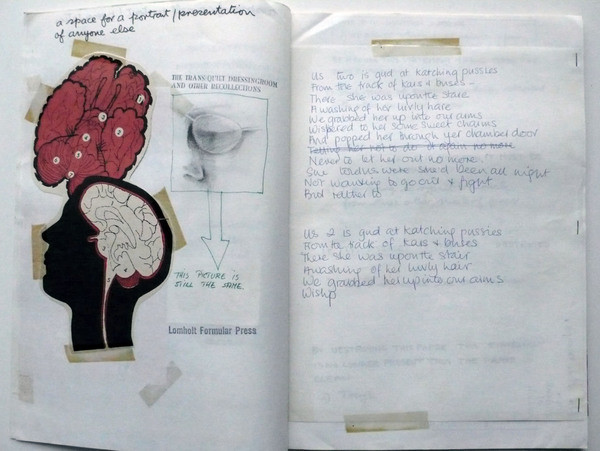 a space for a portrait/presentation
of anyone else
THE TRANS-QUILT DRESSINGROOM
AND OTHER RECOLLECTIONS
THIS PICTURE IS
STILL THE SAME.
Lomholt Formular Press
Us two is gud at katching pussies
From the track of kars & buses
There she was upon the stare
A washing of her luvly hare
We grabbed her up into our arms
Wispered to her some sweet charms
And popped her through yer chamber door
Telling her not to do it again no more
Never to let her out no more.
She was she'd been all night
Not wanting to go out & fight
But rather to
Us 2 is gud at katching pussies
From the track of kars & buses
There she was upon the stair
Awashing of her luvly hair
We grabbed her up into our arms
Wisp